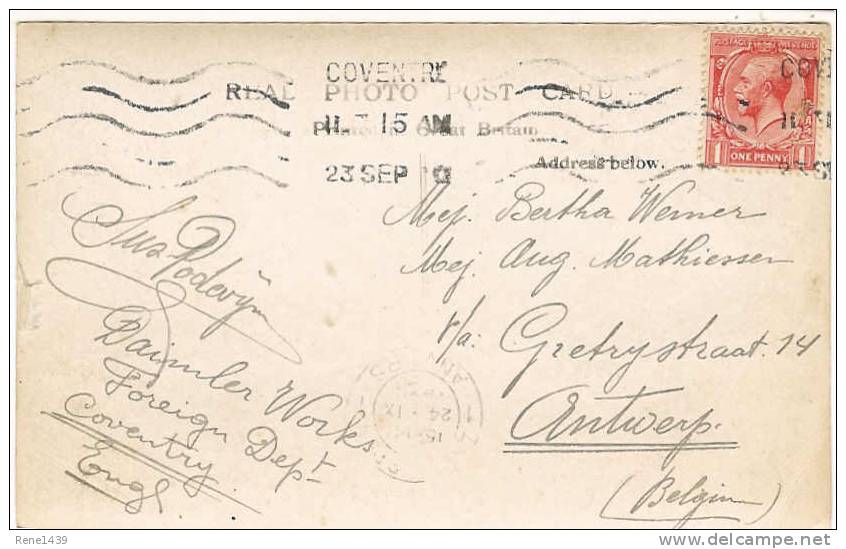 COVENTR
REAL PHOTO POST CARD
11- 15 AM
Printed in Great Britain
23 SEP
Address below.
POSTAGE REVENUE
1 ONE PENNY 1
COVE
11
23 SE
Mej. Bertha Werner
Mej. Aug. Mathiessen
p/a: Gretrystraat. 14
Antwerp.
(Belgium)
Daimler Works
Foreign Dept
Coventry.
Engl.
24 IX
Rene1439
delcampe.net